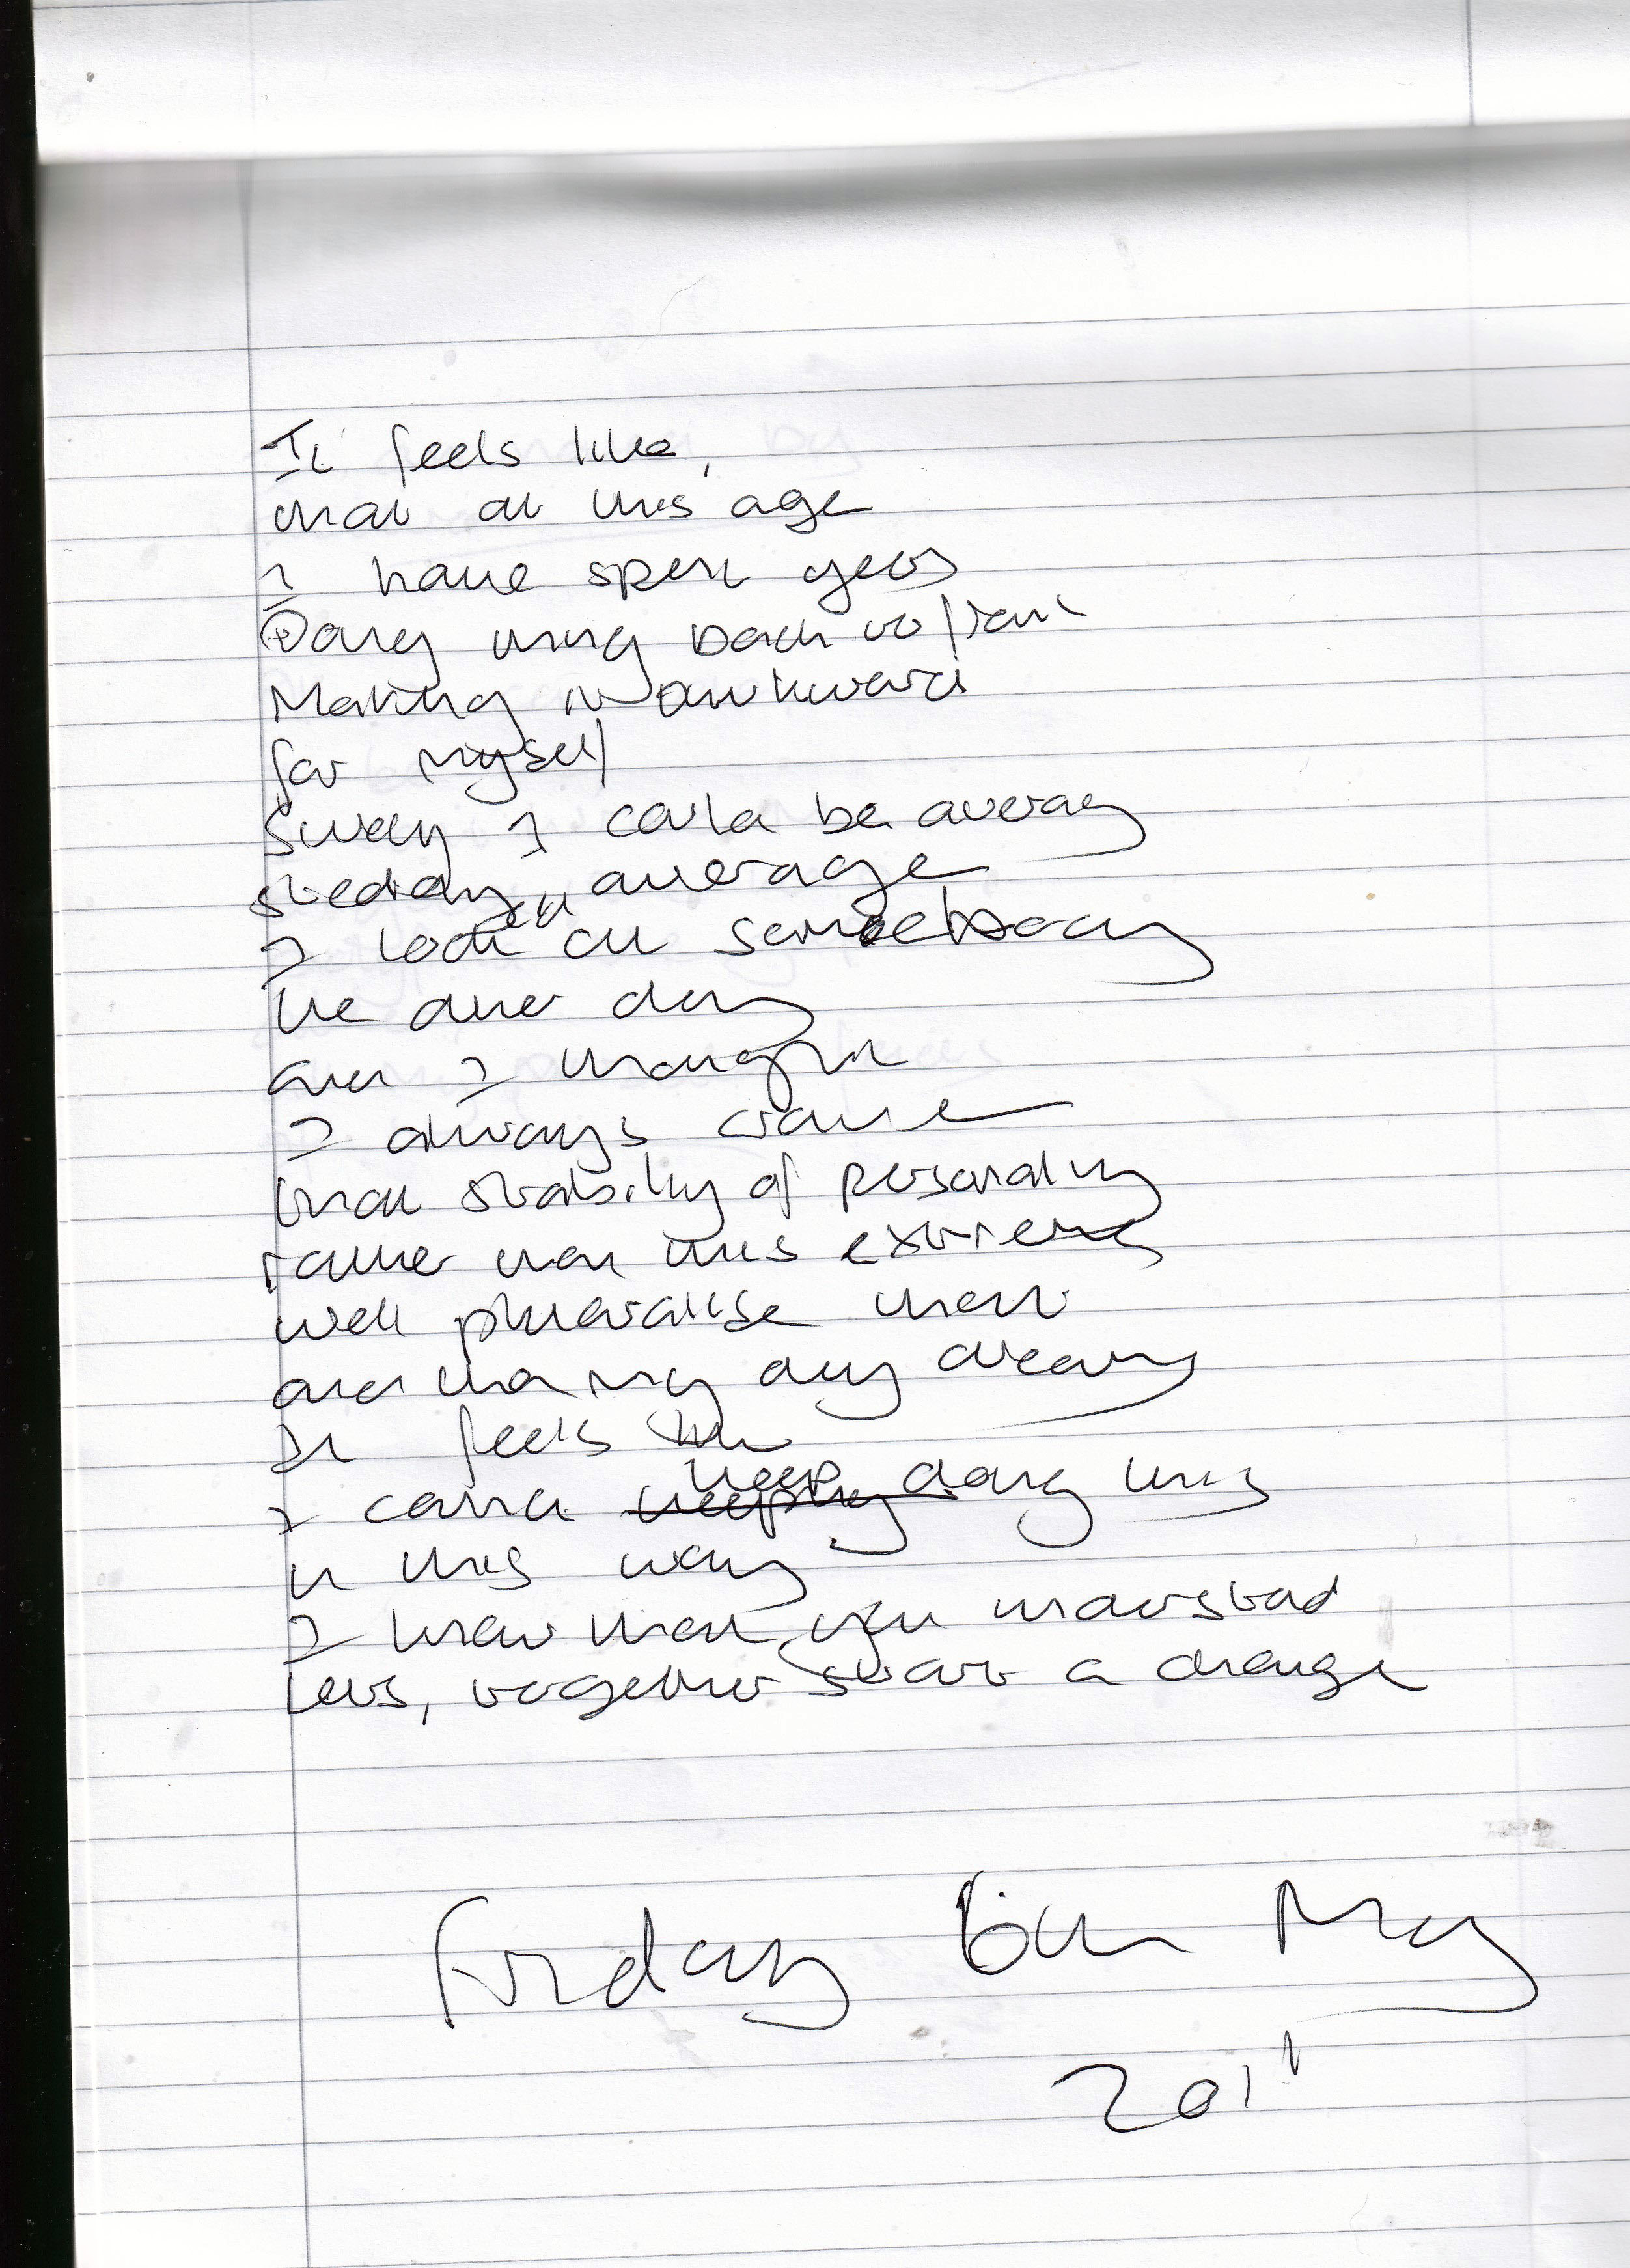 It feels like,
that at this age
I have spent years
Doing thing back to front
Making it awkward
for myself
Surely I could be average
steady, average
I look at somebody
the other day
and I thought
I always crave
that stability of personality
rather than this extremes
well pluralise them
and than my day dreams
It feels like
I can't keep doing this
in this way
I know that you understand
lets, together start a change
Friday 6th May
2011